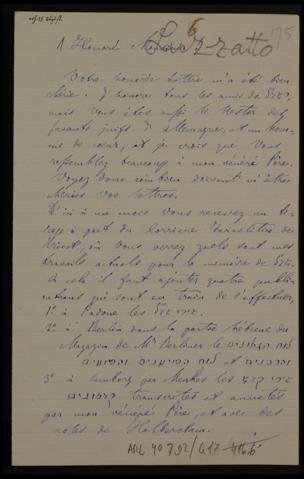 6
Luzzatto
75
1 Honoré Monsieur
Votre honorée lettre m'a été bien
chère. J'honore tous les amis de שד״ל,
mais vous êtes aussi le Nestor des
savants juifs d'Allemagne, et un hom-
me de cœur, et je crois que vous
ressemblez beaucoup à mon vénéré Père.
Voyez donc combien doivent m'être
chéries vos lettres.
D'ici à un mois vous recevrez un ti-
rage à part du Corriere Israelitico de
Triest, où vous verrez quels sont mes
travaux actuels pour la mémoire de שד״ל.
à cela il faut ajouter quatre publi-
cations qui sont en train de s'effectuer,
1° à Padoue les
2° à Berlin dans la partie hébraïque du
Magazin de Mr Berliner le לוח
et לוח הפייטנים והפיוטים
3° à Lemberg par Menkes les
transcrites et annotées
par mon vénéré Père, et avec des
notes de Halberstam.